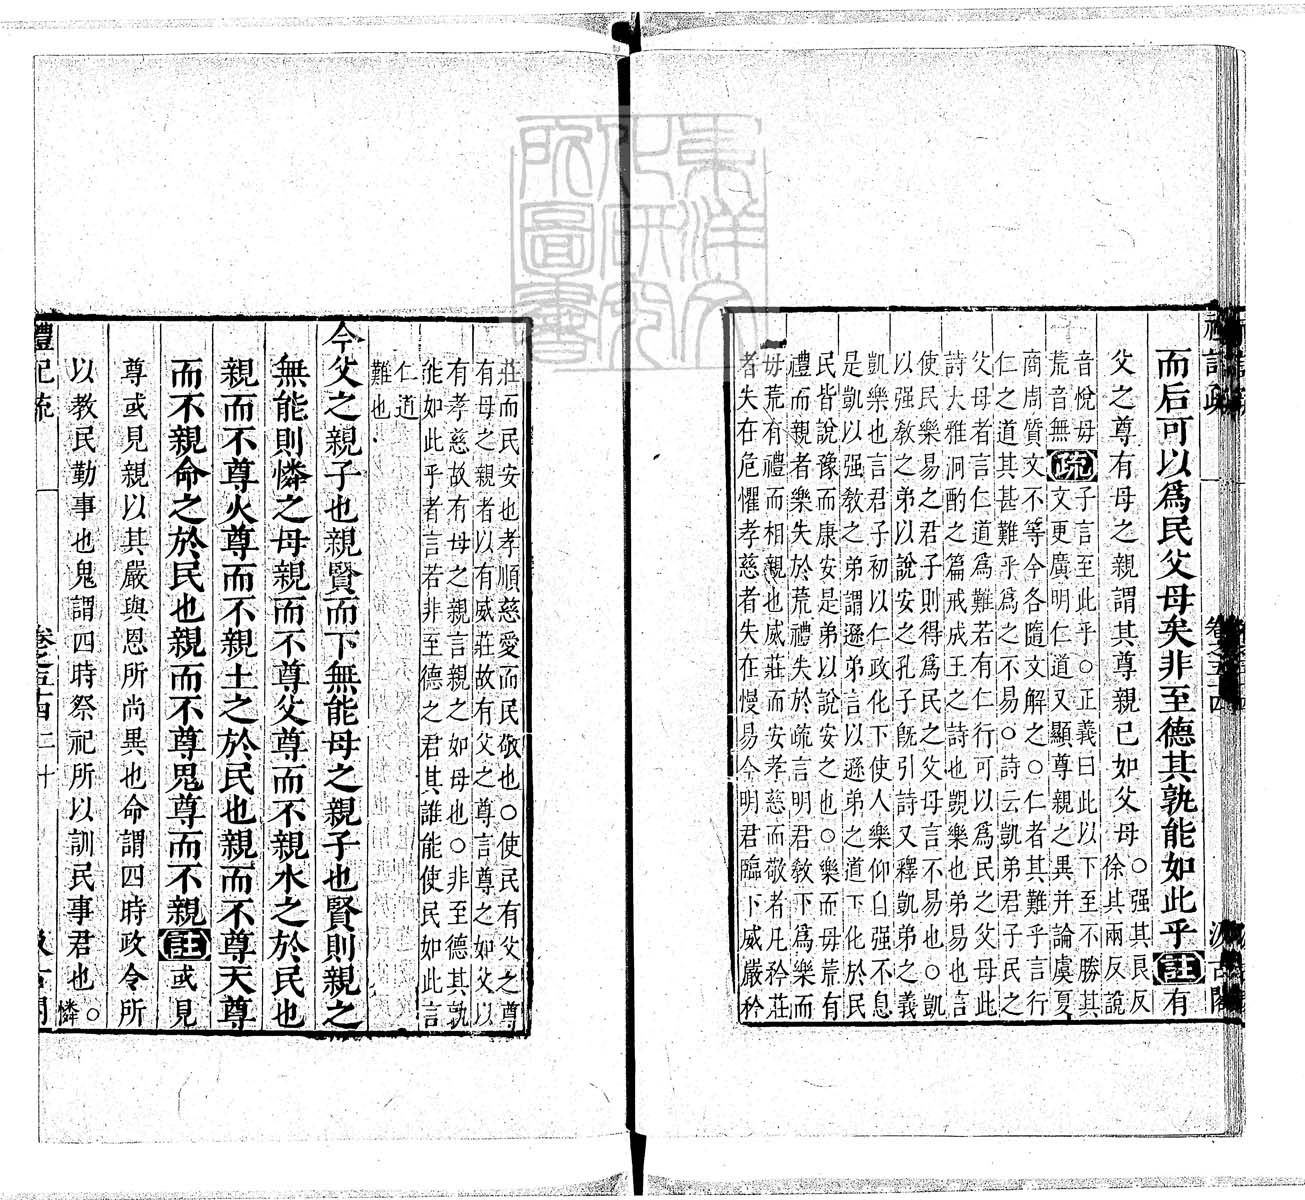 禮記疏 卷之五十四 汲古閣
而后可以爲民父母矣非至德其孰能如此乎註有
父之尊有母之親謂其尊親已如父母○强其良反
徐其兩反說
音悅毋
荒音無
疏子言至此乎○正義曰此以下至不勝其
文更廣明仁道又顯尊親之異并論虞夏
商周質文不等今各隨文解之○仁者其難乎言行
仁之道其甚難乎爲之不易○詩云凱弟君子民之
父母者言仁道爲難若有仁行可以爲民之父母此
詩大雅泂酌之篇戒成王之詩也凱樂也弟易也言
使民樂易之君子則得爲民之父母言不易也○凱
以强敎之弟以說安之孔子旣引詩又釋凱弟之義
凱樂也言君子初以仁政化下使人樂仰自强不息
是凱以强敎之弟謂遜弟言以遜弟之道下化於民
民皆說豫而康安是弟以說安之也○樂而毋荒有
禮而親者樂失於荒禮失於疏言明君敎下爲樂而
毋荒有禮而相親也威莊而安孝慈而敬者凡矜莊
者失在危懼孝慈者失在慢易今明君臨下威嚴矜
莊而民安也孝順慈愛而民敬也○使民有父之尊
有母之親者以有威莊故有父之尊言尊之如父以
有孝慈故有母之親言親之如母也○非至德其孰
能如此乎者言若非至德之君其誰能使民如此言
仁道
難也
今父之親子也親賢而下無能母之親子也賢則親之
無能則憐之母親而不尊父尊而不親水之於民也
親而不尊火尊而不親土之於民也親而不尊天尊
而不親命之於民也親而不尊鬼尊而不親註或見
尊或見親以其嚴與恩所尚異也命謂四時政令所
以敎民勤事也鬼謂四時祭祀所以訓民事君也○
憐
禮記疏 卷之五十四 二十 汲古閣
東洋文化研究所圖書